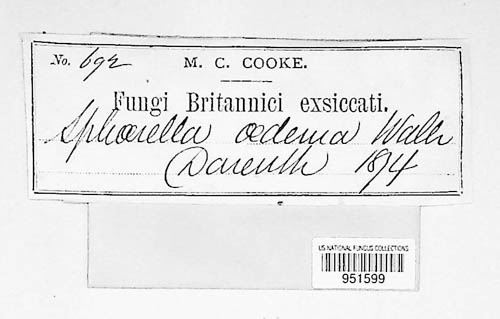 No. 692 M. C. COOKE.
Fungi Britannici exsiccati.
Sphærella œdema Wallr
Darenth 1874
US NATIONAL FUNGUS COLLECTIONS
951599